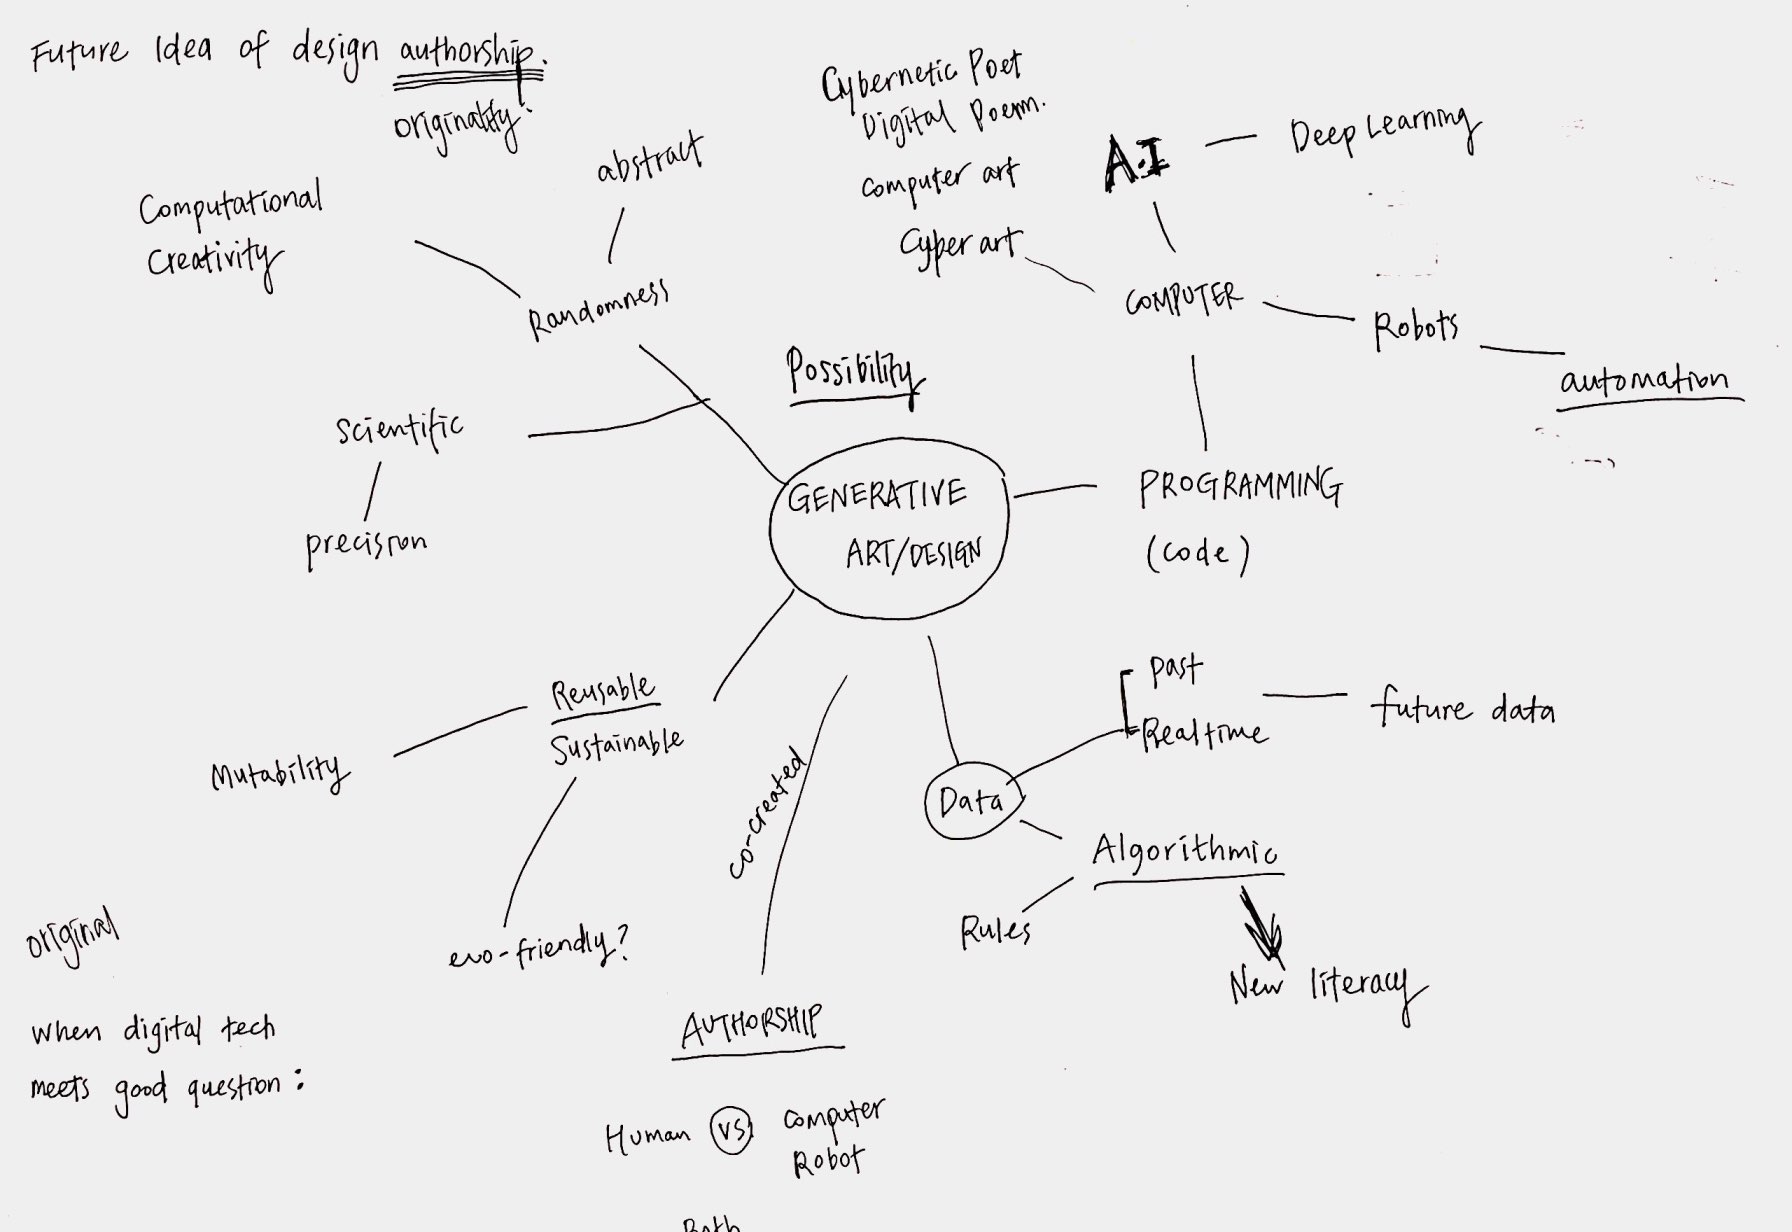 Future Idea of design authorship.
originality?
Computational
Creativity
abstract
Randomness
Scientific
precision
Cybernetic Poet
Digital Poem.
Computer art
Cyber art
A.I
Deep Learning
COMPUTER
Robots
automation
Possibility
GENERATIVE
ART/DESIGN
PROGRAMMING
(code)
Reusable
Sustainable
Mutability
eco-friendly?
co-created
Past
Realtime
future data
Data
Algorithmic
Rules
New literacy
original
when digital tech
meets good question:
AUTHORSHIP
Human VS Computer
Robot
Both